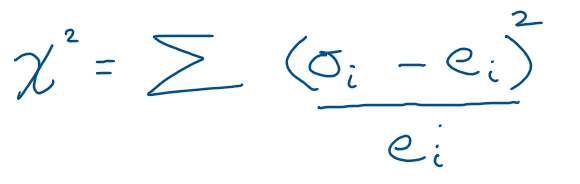 χ² = Σ (σᵢ − eᵢ)² / eᵢ